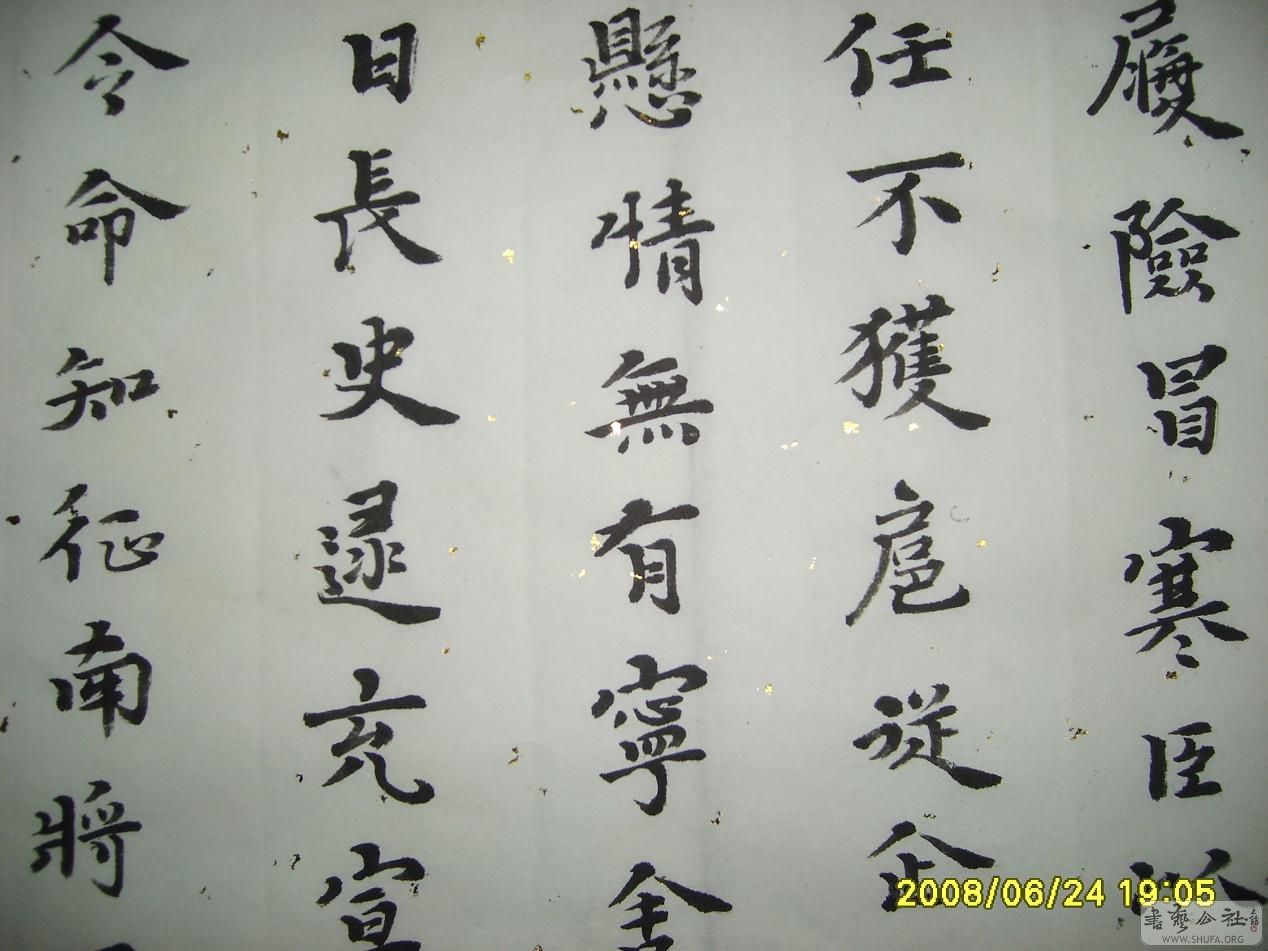 履險冒寒臣以
任不獲扈從企
懸情無有寧舍
日長史逯充宣
令命知征南將
2008/06/24 19:05
書藝公社
WWW.SHUFA.ORG